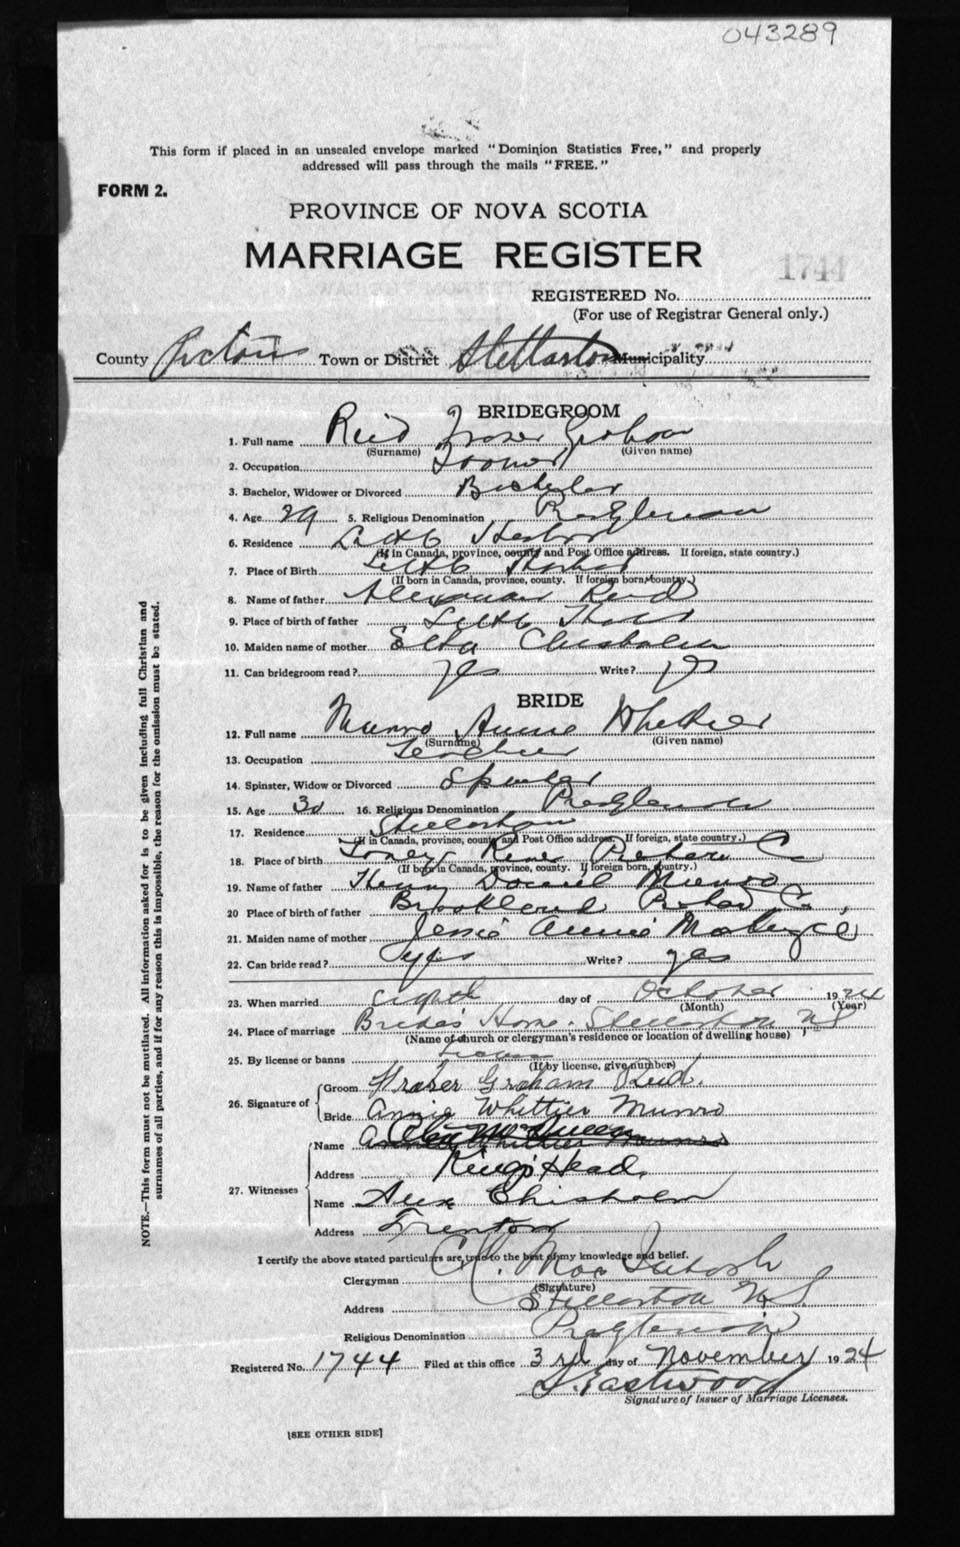 043289
This form if placed in an unsealed envelope marked "Dominion Statistics Free," and properly
addressed will pass through the mails "FREE."
FORM 2.
PROVINCE OF NOVA SCOTIA
MARRIAGE REGISTER
1744
REGISTERED No.
(For use of Registrar General only.)
County Pictou Town or District Stellarton Municipality
BRIDEGROOM
1. Full name Reid Fraser Graham
(Surname) (Given name)
2. Occupation
3. Bachelor, Widower or Divorced Bachelor
4. Age 29 5. Religious Denomination Presbyterian
6. Residence Little Harbor
(If in Canada, province, county and Post Office address. If foreign, state country.)
7. Place of Birth Little Harbor
(If born in Canada, province, county. If foreign born, country.)
8. Name of father Alexander Reid
9. Place of birth of father Little Harbor
10. Maiden name of mother Chisholm
11. Can bridegroom read? yes Write? yes
BRIDE
12. Full name Munro Annie Whittier
(Surname) (Given name)
13. Occupation Teacher
14. Spinster, Widow or Divorced Spinster
15. Age 30 16. Religious Denomination Presbyterian
17. Residence Stellarton
(If in Canada, province, county and Post Office address. If foreign, state country.)
18. Place of birth Toney River Pictou Co
(If born in Canada, province, county. If foreign born, country.)
19. Name of father Henry Daniel Munro
20 Place of birth of father Brookland Pictou Co.,
21. Maiden name of mother Jessie Annie MacKenzie
22. Can bride read? yes Write? yes
23. When married eighth day of October 1924
(Month) (Year)
24. Place of marriage Bride's Home. Stellarton N S
(Name of church or clergyman's residence or location of dwelling house)
25. By license or banns License
(If by license, give number)
26. Signature of Groom Fraser Graham Reid.
Bride Annie Whittier Munro
27. Witnesses Name Annie Whittier Munro
Address King's Head,
Name Alex Chisholm
Address Trenton
I certify the above stated particulars are true to the best of my knowledge and belief.
Clergyman C.C. MacIntosh
(Signature)
Address Stellarton N.S.
Religious Denomination Presbyterian
Registered No. 1744 Filed at this office 3rd day of November 1924
Eastwood
Signature of Issuer of Marriage Licenses.
[SEE OTHER SIDE]
NOTE.—This form must not be mutilated. All information asked for is to be given including full Christian and
surnames of all parties, and if for any reason this is impossible, the reason for the omission must be stated.